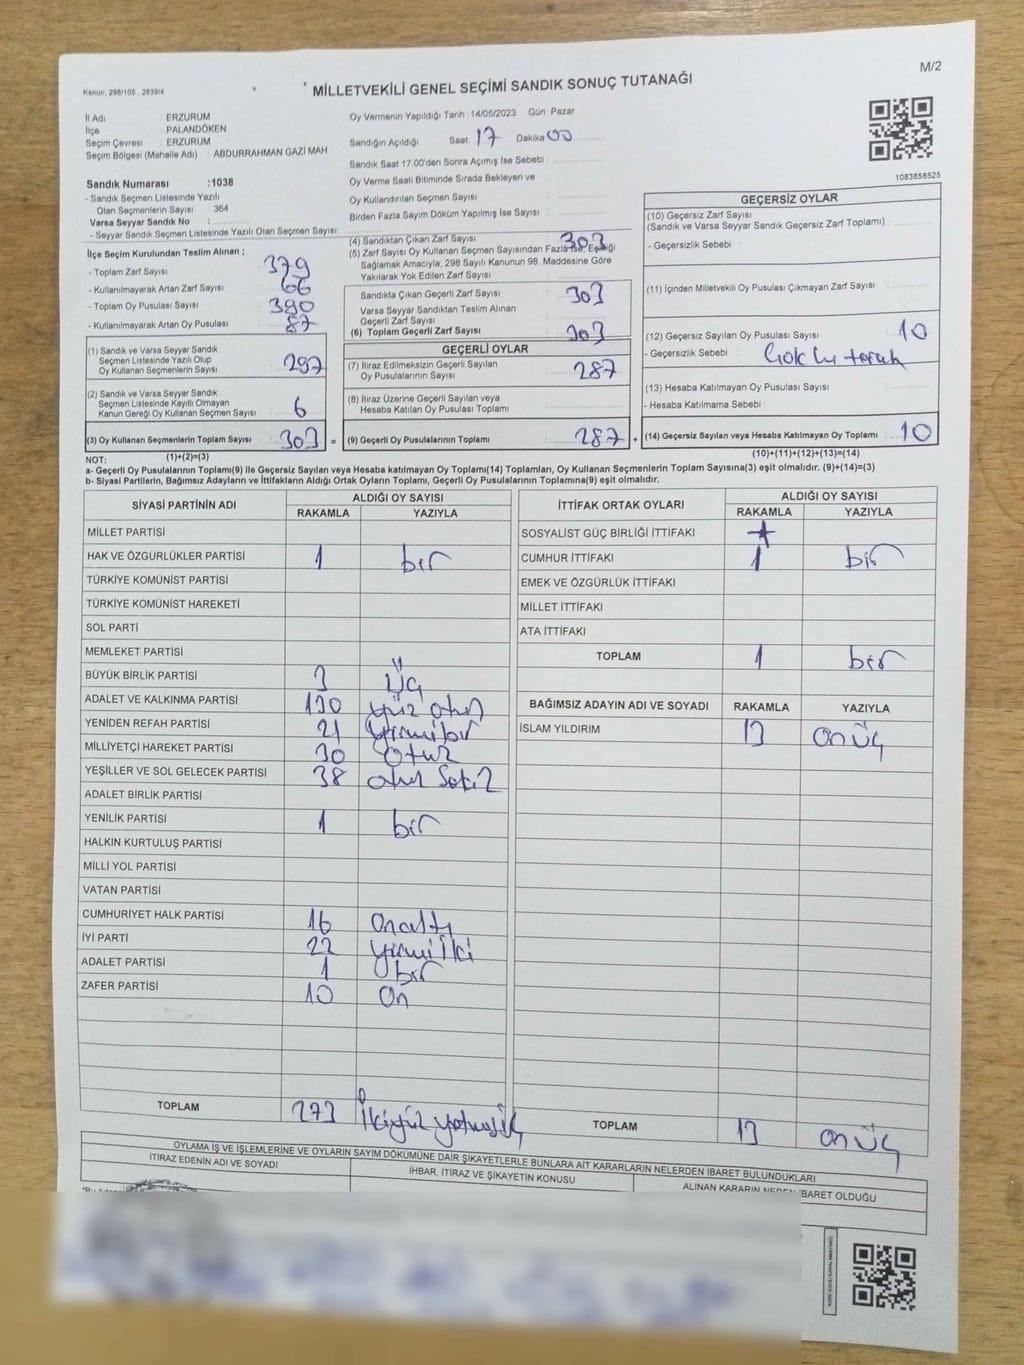 M/2
Kanun, 298/105 , 2839/4
MİLLETVEKİLİ GENEL SEÇİMİ SANDIK SONUÇ TUTANAĞI
İl Adı ERZURUM
İlçe PALANDÖKEN
Seçim Çevresi ERZURUM
Seçim Bölgesi (Mahalle Adı) : ABDURRAHMAN GAZI MAH
Sandık Numarası :1038
- Sandık Seçmen Listesinde Yazılı
Olan Seçmenlerin Sayısı : 364
Varsa Seyyar Sandık No :
- Seyyar Sandık Seçmen Listesinde Yazılı Olan Seçmen Sayısı:
Oy Vermenin Yapıldığı Tarih :14/05/2023 Gün: Pazar
Sandığın Açıldığı Saat 17 Dakika 00
Sandık Saat 17.00'den Sonra Açılmış İse Sebebi :
Oy Verme Saati Bitiminde Sırada Bekleyen ve
Oy Kullandırılan Seçmen Sayısı :
Birden Fazla Sayım Döküm Yapılmış İse Sayısı :
1083858525
İlçe Seçim Kurulundan Teslim Alınan ;
- Toplam Zarf Sayısı : 379
- Kullanılmayarak Artan Zarf Sayısı : 66
- Toplam Oy Pusulası Sayısı : 390
- Kullanılmayarak Artan Oy Pusulası : 87
(1) Sandık ve Varsa Seyyar Sandık
Seçmen Listesinde Yazılı Olup
Oy Kullanan Seçmenlerin Sayısı : 297
(2) Sandık ve Varsa Seyyar Sandık
Seçmen Listesinde Kayıtlı Olmayan
Kanun Gereği Oy Kullanan Seçmen Sayısı : 6
(3) Oy Kullanan Seçmenlerin Toplam Sayısı : 303 =
(1)+(2)=(3)
(4) Sandıktan Çıkan Zarf Sayısı : 303
(5) Zarf Sayısı Oy Kullanan Seçmen Sayısından Fazla İse, Eşitliği
Sağlamak Amacıyla, 298 Sayılı Kanunun 98. Maddesine Göre
Yakılarak Yok Edilen Zarf Sayısı :
Sandıkta Çıkan Geçerli Zarf Sayısı : 303
Varsa Seyyar Sandıktan Teslim Alınan
Geçerli Zarf Sayısı :
(6) Toplam Geçerli Zarf Sayısı : 303
GEÇERLİ OYLAR
(7) İtiraz Edilmeksizin Geçerli Sayılan
Oy Pusulalarının Sayısı : 287
(8) İtiraz Üzerine Geçerli Sayılan veya
Hesaba Katılan Oy Pusulası Toplamı :
(9) Geçerli Oy Pusulalarının Toplamı : 287 +
GEÇERSİZ OYLAR
(10) Geçersiz Zarf Sayısı
(Sandık ve Varsa Seyyar Sandık Geçersiz Zarf Toplamı) :
- Geçersizlik Sebebi :
(11) İçinden Milletvekili Oy Pusulası Çıkmayan Zarf Sayısı :
(12) Geçersiz Sayılan Oy Pusulası Sayısı : 10
- Geçersizlik Sebebi :
(13) Hesaba Katılmayan Oy Pusulası Sayısı :
- Hesaba Katılmama Sebebi :
(14) Geçersiz Sayılan veya Hesaba Katılmayan Oy Toplamı : 10
(10)+(11)+(12)+(13)=(14)
NOT:
a- Geçerli Oy Pusulalarının Toplamı(9) ile Geçersiz Sayılan veya Hesaba katılmayan Oy Toplamı(14) Toplamları, Oy Kullanan Seçmenlerin Toplam Sayısına(3) eşit olmalıdır. (9)+(14)=(3)
b- Siyasi Partilerin, Bağımsız Adayların ve İttifakların Aldığı Ortak Oyların Toplamı, Geçerli Oy Pusulalarının Toplamına(9) eşit olmalıdır.
SİYASİ PARTİNİN ADI ALDIĞI OY SAYISI
RAKAMLA YAZIYLA
MİLLET PARTİSİ
HAK VE ÖZGÜRLÜKLER PARTİSİ 1 bir
TÜRKİYE KOMÜNİST PARTİSİ
TÜRKİYE KOMÜNİST HAREKETİ
SOL PARTİ
MEMLEKET PARTİSİ
BÜYÜK BİRLİK PARTİSİ 3 Üç
ADALET VE KALKINMA PARTİSİ 130 yüz otuz
YENİDEN REFAH PARTİSİ 21 yirmi bir
MİLLİYETÇİ HAREKET PARTİSİ 30 Otuz
YEŞİLLER VE SOL GELECEK PARTİSİ 38 otuz Sekiz
ADALET BİRLİK PARTİSİ
YENİLİK PARTİSİ 1 bir
HALKIN KURTULUŞ PARTİSİ
MİLLİ YOL PARTİSİ
VATAN PARTİSİ
CUMHURİYET HALK PARTİSİ 16 onaltı
İYİ PARTİ 22 yirmi iki
ADALET PARTİSİ 1 bir
ZAFER PARTİSİ 10 On
TOPLAM 273 İkiyüz yetmiş üç
İTTİFAK ORTAK OYLARI ALDIĞI OY SAYISI
RAKAMLA YAZIYLA
SOSYALİST GÜÇ BİRLİĞİ İTTİFAKI
CUMHUR İTTİFAKI 1 bir
EMEK VE ÖZGÜRLÜK İTTİFAKI
MİLLET İTTİFAKI
ATA İTTİFAKI
TOPLAM 1 bir
BAĞIMSIZ ADAYIN ADI VE SOYADI RAKAMLA YAZIYLA
İSLAM YILDIRIM 13 on üç
TOPLAM 13 on üç
OYLAMA İŞ VE İŞLEMLERİNE VE OYLARIN SAYIM DÖKÜMÜNE DAİR ŞİKAYETLERLE BUNLARA AİT KARARLARIN NELERDEN İBARET BULUNDUKLARI
İTİRAZ EDENİN ADI VE SOYADI İHBAR, İTİRAZ VE ŞİKAYETİN KONUSU ALINAN KARARIN NEDEN İBARET OLDUĞU